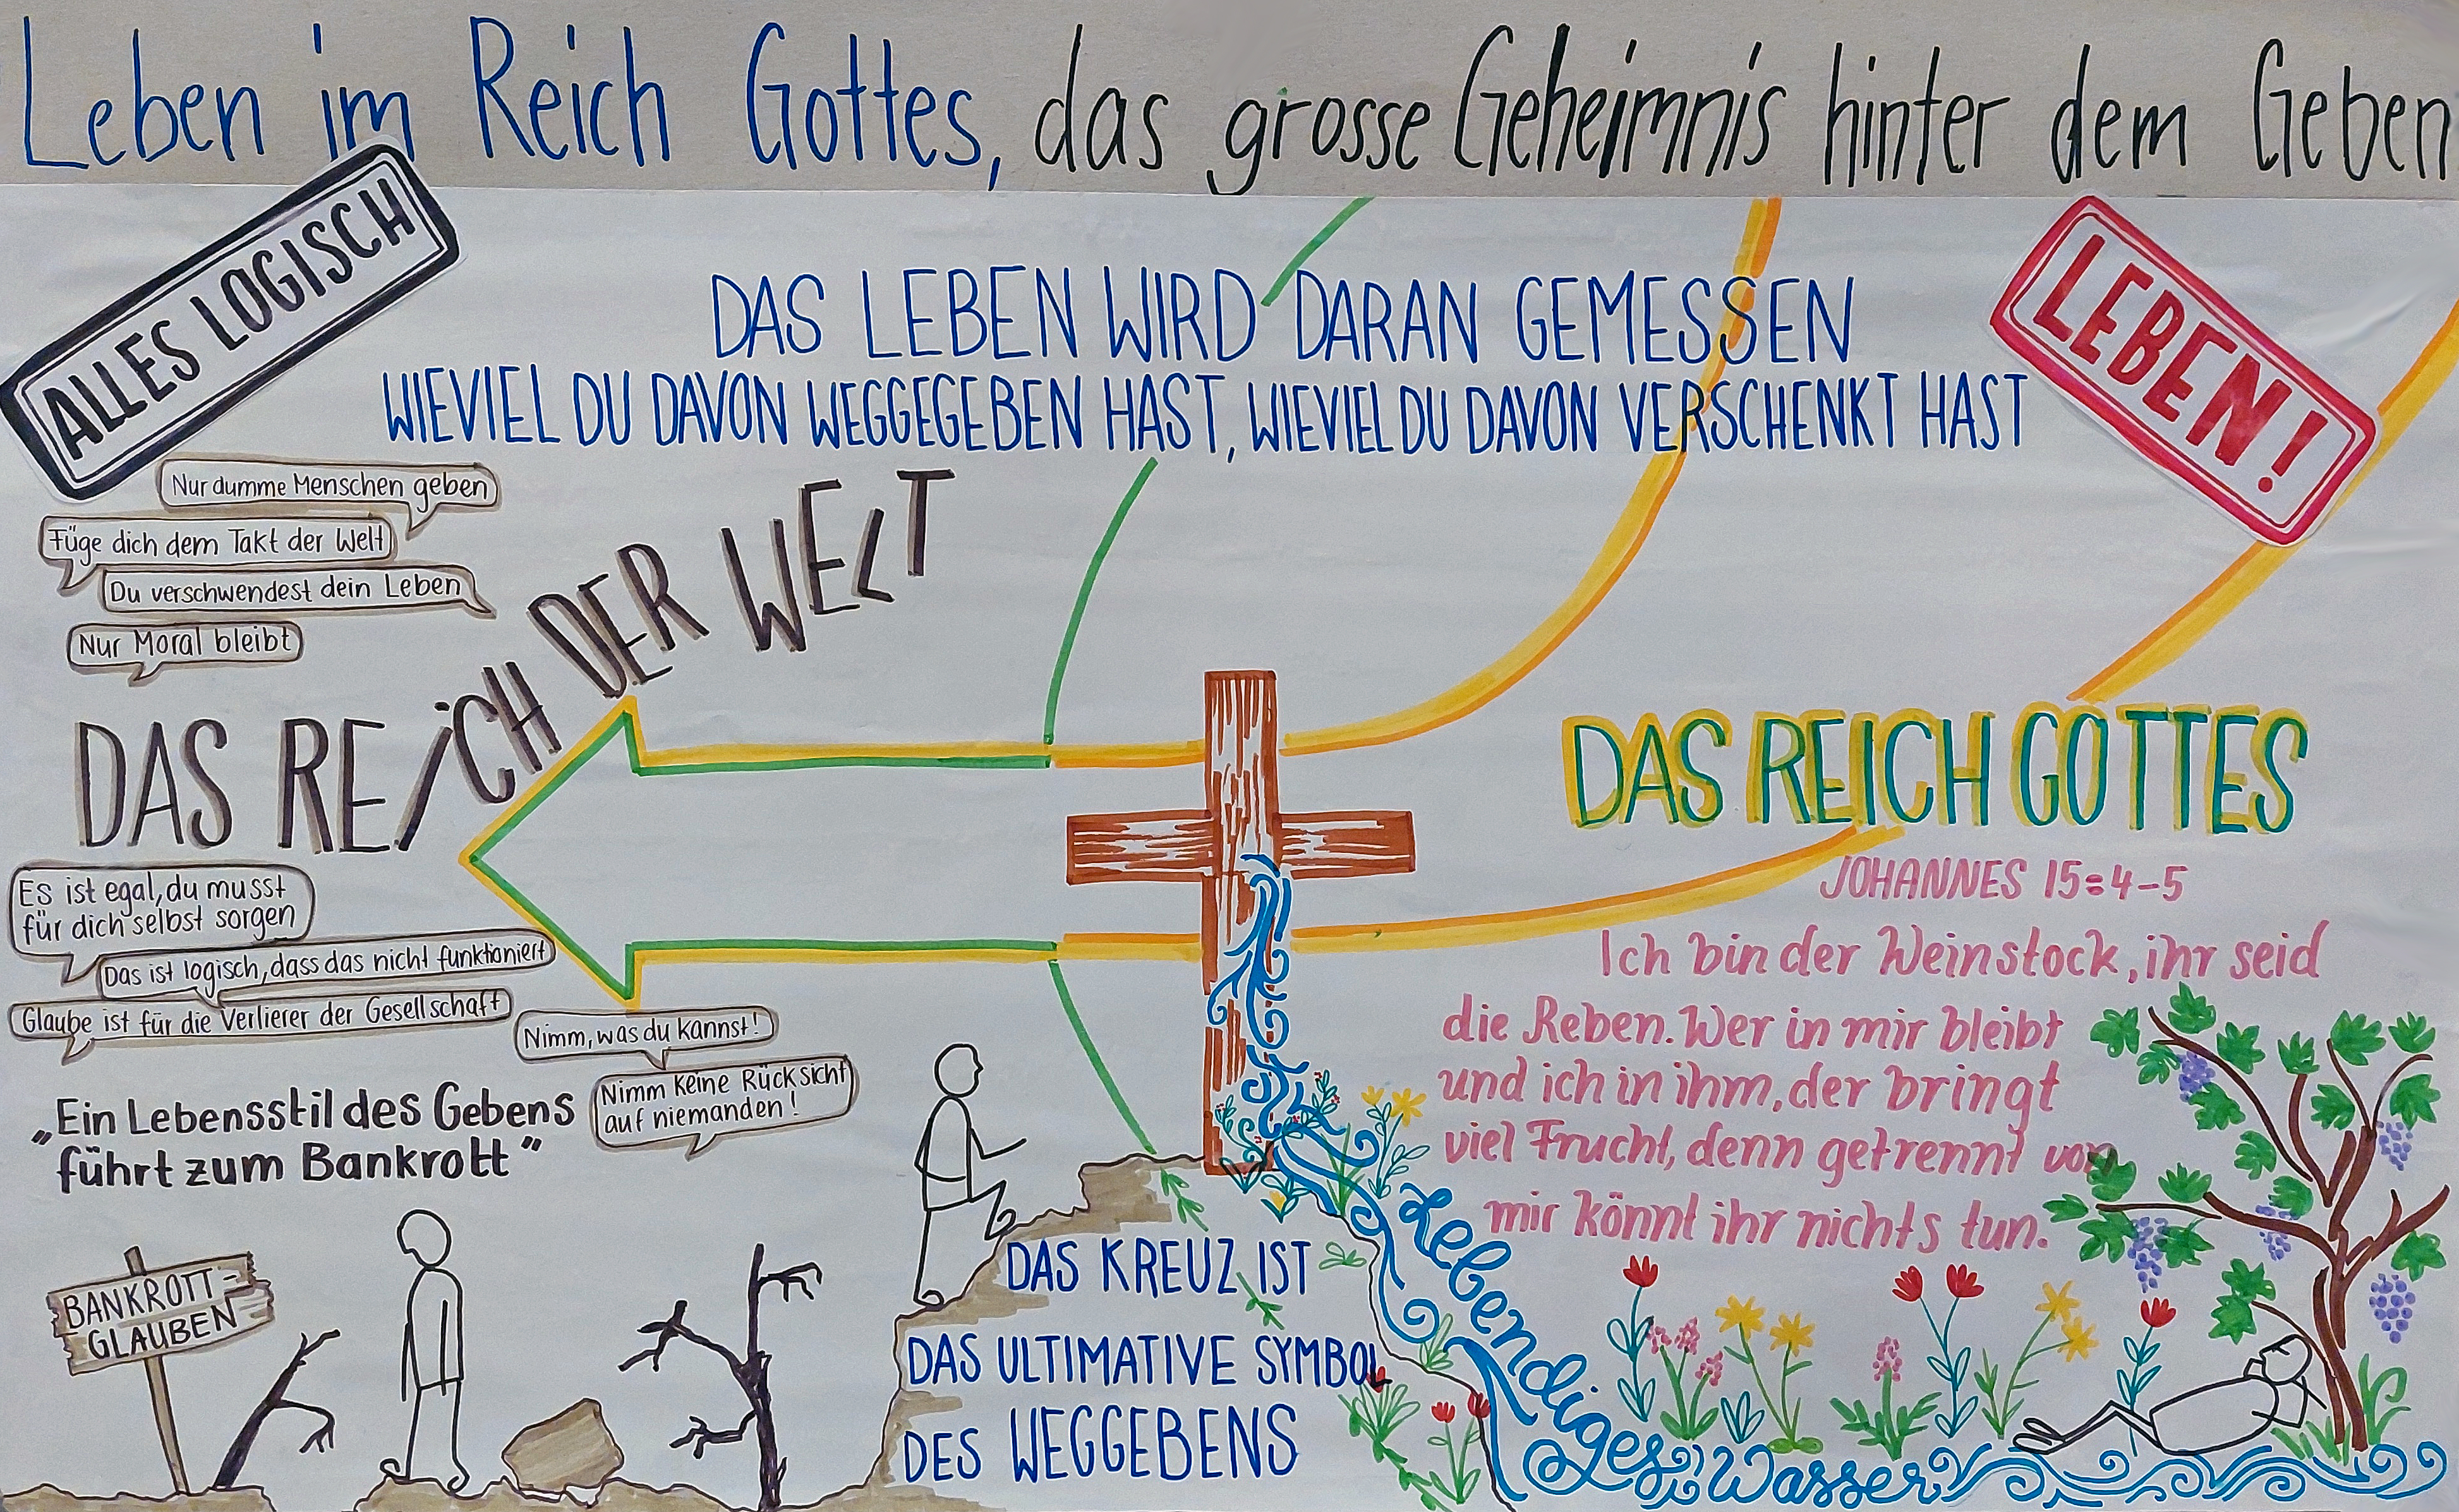 Leben im Reich Gottes, das grosse Geheimnis hinter dem Geben
ALLES LOGISCH
LEBEN!
DAS LEBEN WIRD DARAN GEMESSEN
WIEVIEL DU DAVON WEGGEGEBEN HAST, WIEVIEL DU DAVON VERSCHENKT HAST
Nur dumme Menschen geben
Füge dich dem Takt der Welt
Du verschwendest dein Leben
Nur Moral bleibt
DAS REICH DER WELT
Es ist egal, du musst
für dich selbst sorgen
Das ist logisch, dass das nicht funktioniert
Glaube ist für die Verlierer der Gesellschaft
Nimm, was du kannst!
Nimm keine Rücksicht
auf niemanden!
„Ein Lebensstil des Gebens
führt zum Bankrott"
BANKROTT-
GLAUBEN
DAS KREUZ IST
DAS ULTIMATIVE SYMBOL
DES WEGGEBENS
DAS REICH GOTTES
JOHANNES 15:4-5
Ich bin der Weinstock, ihr seid
die Reben. Wer in mir bleibt
und ich in ihm, der bringt
viel Frucht, denn getrennt von
mir könnt ihr nichts tun.
Lebendiges Wasser